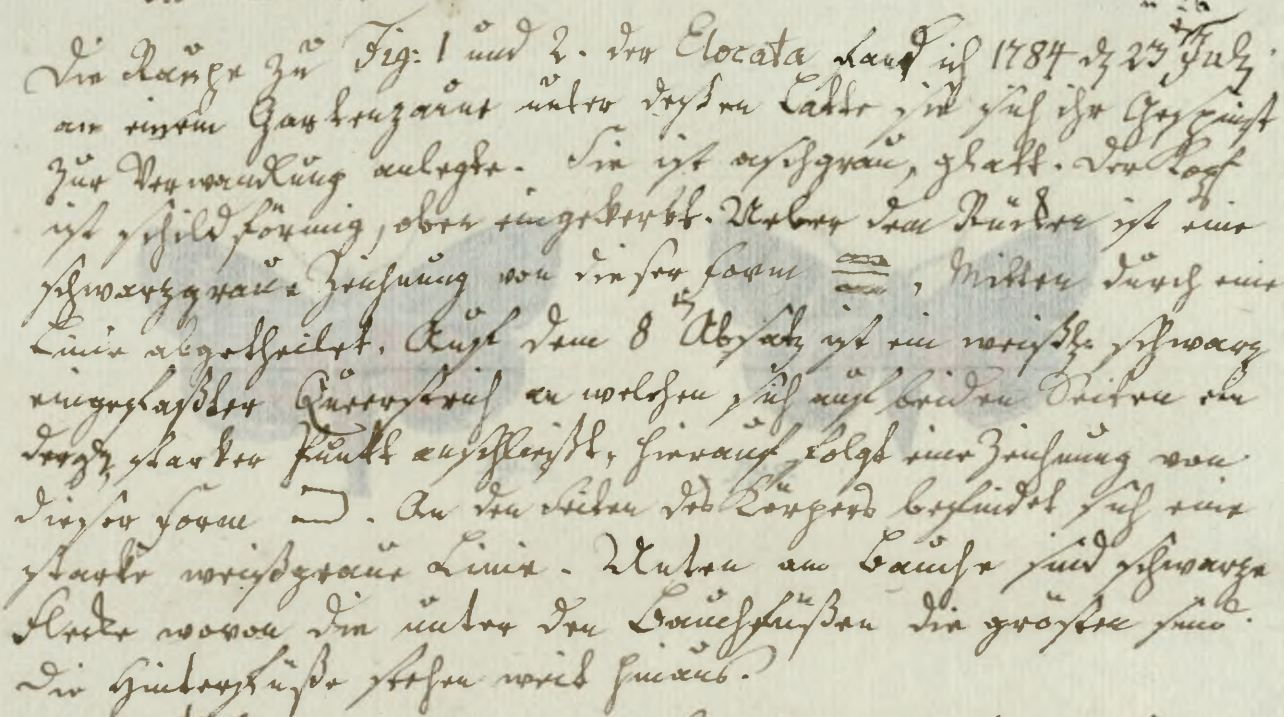 Die Raupe zu Fig: 1 und 2. der Elocata fand ich 1784 d 23 July
an einem Gartenzaune unter deßen Latte sie sich ihr Gespinst
zur Verwandlung anlegte. Sie ist aschgrau, glatt. Der Kopf
ist schildförmig, oben eingekerbt. Ueber dem Rücken ist eine
schwarzgraue Zeichnung von dieser Form , Mitten durch eine
Linie abgetheilet. Auf dem 8 Absatz ist ein weißl. schwarz
eingefaßter Queerstrich an welchen sich auf beiden Seiten ein
dergl. starker Punkt anschließt, hierauf folgt eine Zeichnung von
dieser Form . An den Seiten des Körpers befindet sich eine
starke weißgraue Linie. Unten am Bauche sind schwarze
Flecke wovon die unter den Bauchfüßen die grösten sind.
Die Hinterfüße stehen weit hinaus.